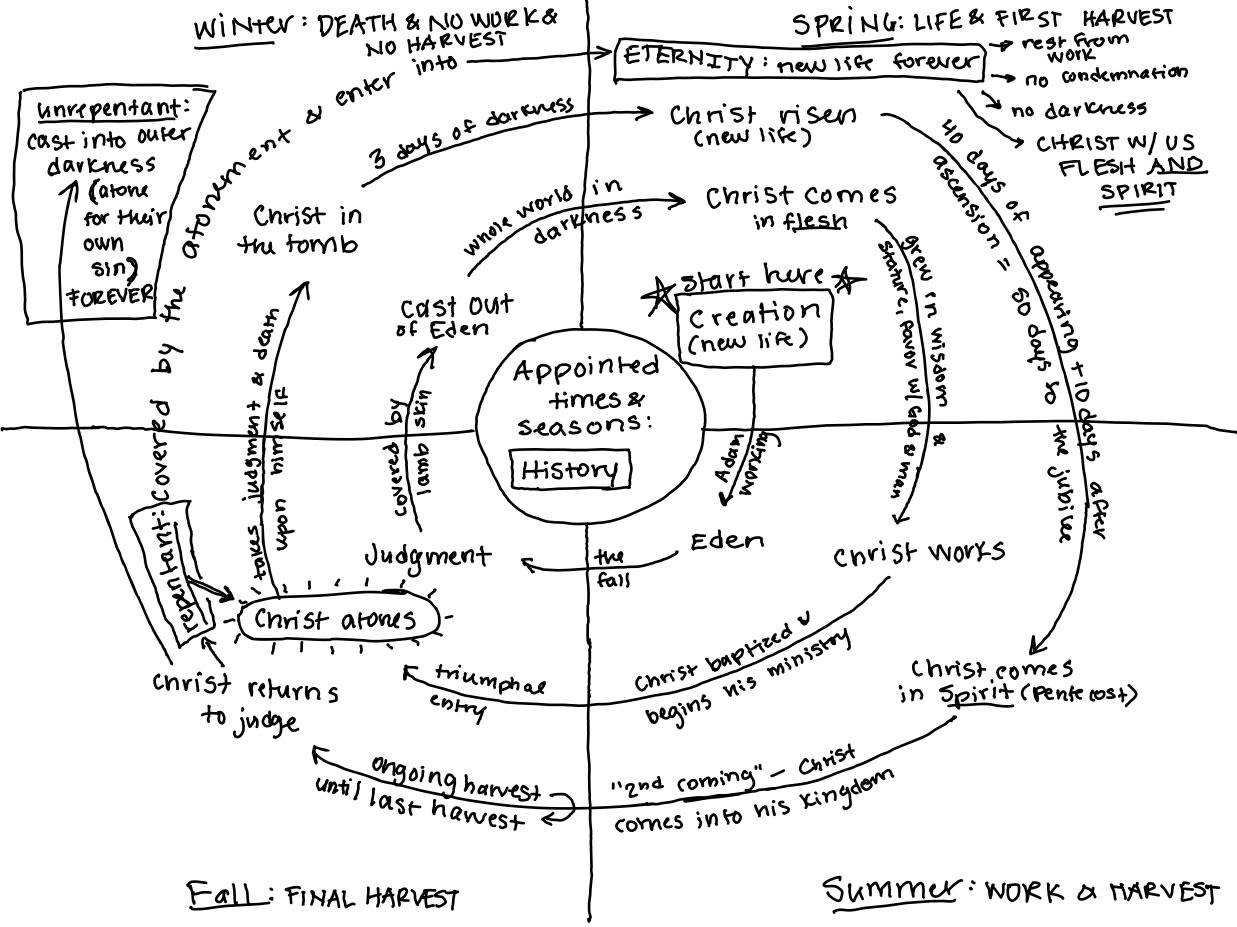 Winter: DEATH & NO WORK &
NO HARVEST
SPRING: LIFE & FIRST HARVEST
ETERNITY: new life forever
rest from
work
no condemnation
no darkness
CHRIST W/ US
FLESH AND
SPIRIT
unrepentant:
cast into outer
darkness
(atone
for their
own
sin)
FOREVER
repentant:
covered by the atonement & enter into
3 days of darkness
Christ risen
(new life)
40 days of appearing + 10 days after
ascension = 50 days to the jubilee
Christ in
the tomb
whole world in
darkness
Christ comes
in flesh
grew in wisdom &
stature, favor w/ God & man
cast out
of Eden
start here
Creation
(new life)
Appointed
times &
seasons:
History
takes judgment & death
upon himself
covered by
lamb skin
Adam
working
Judgment
the
fall
Eden
Christ works
Christ atones
Christ baptized &
begins his ministry
triumphal
entry
Christ returns
to judge
Christ comes
in Spirit (Pentecost)
ongoing harvest
until last harvest
"2nd coming" - Christ
comes into his kingdom
Fall: FINAL HARVEST
Summer: WORK & HARVEST